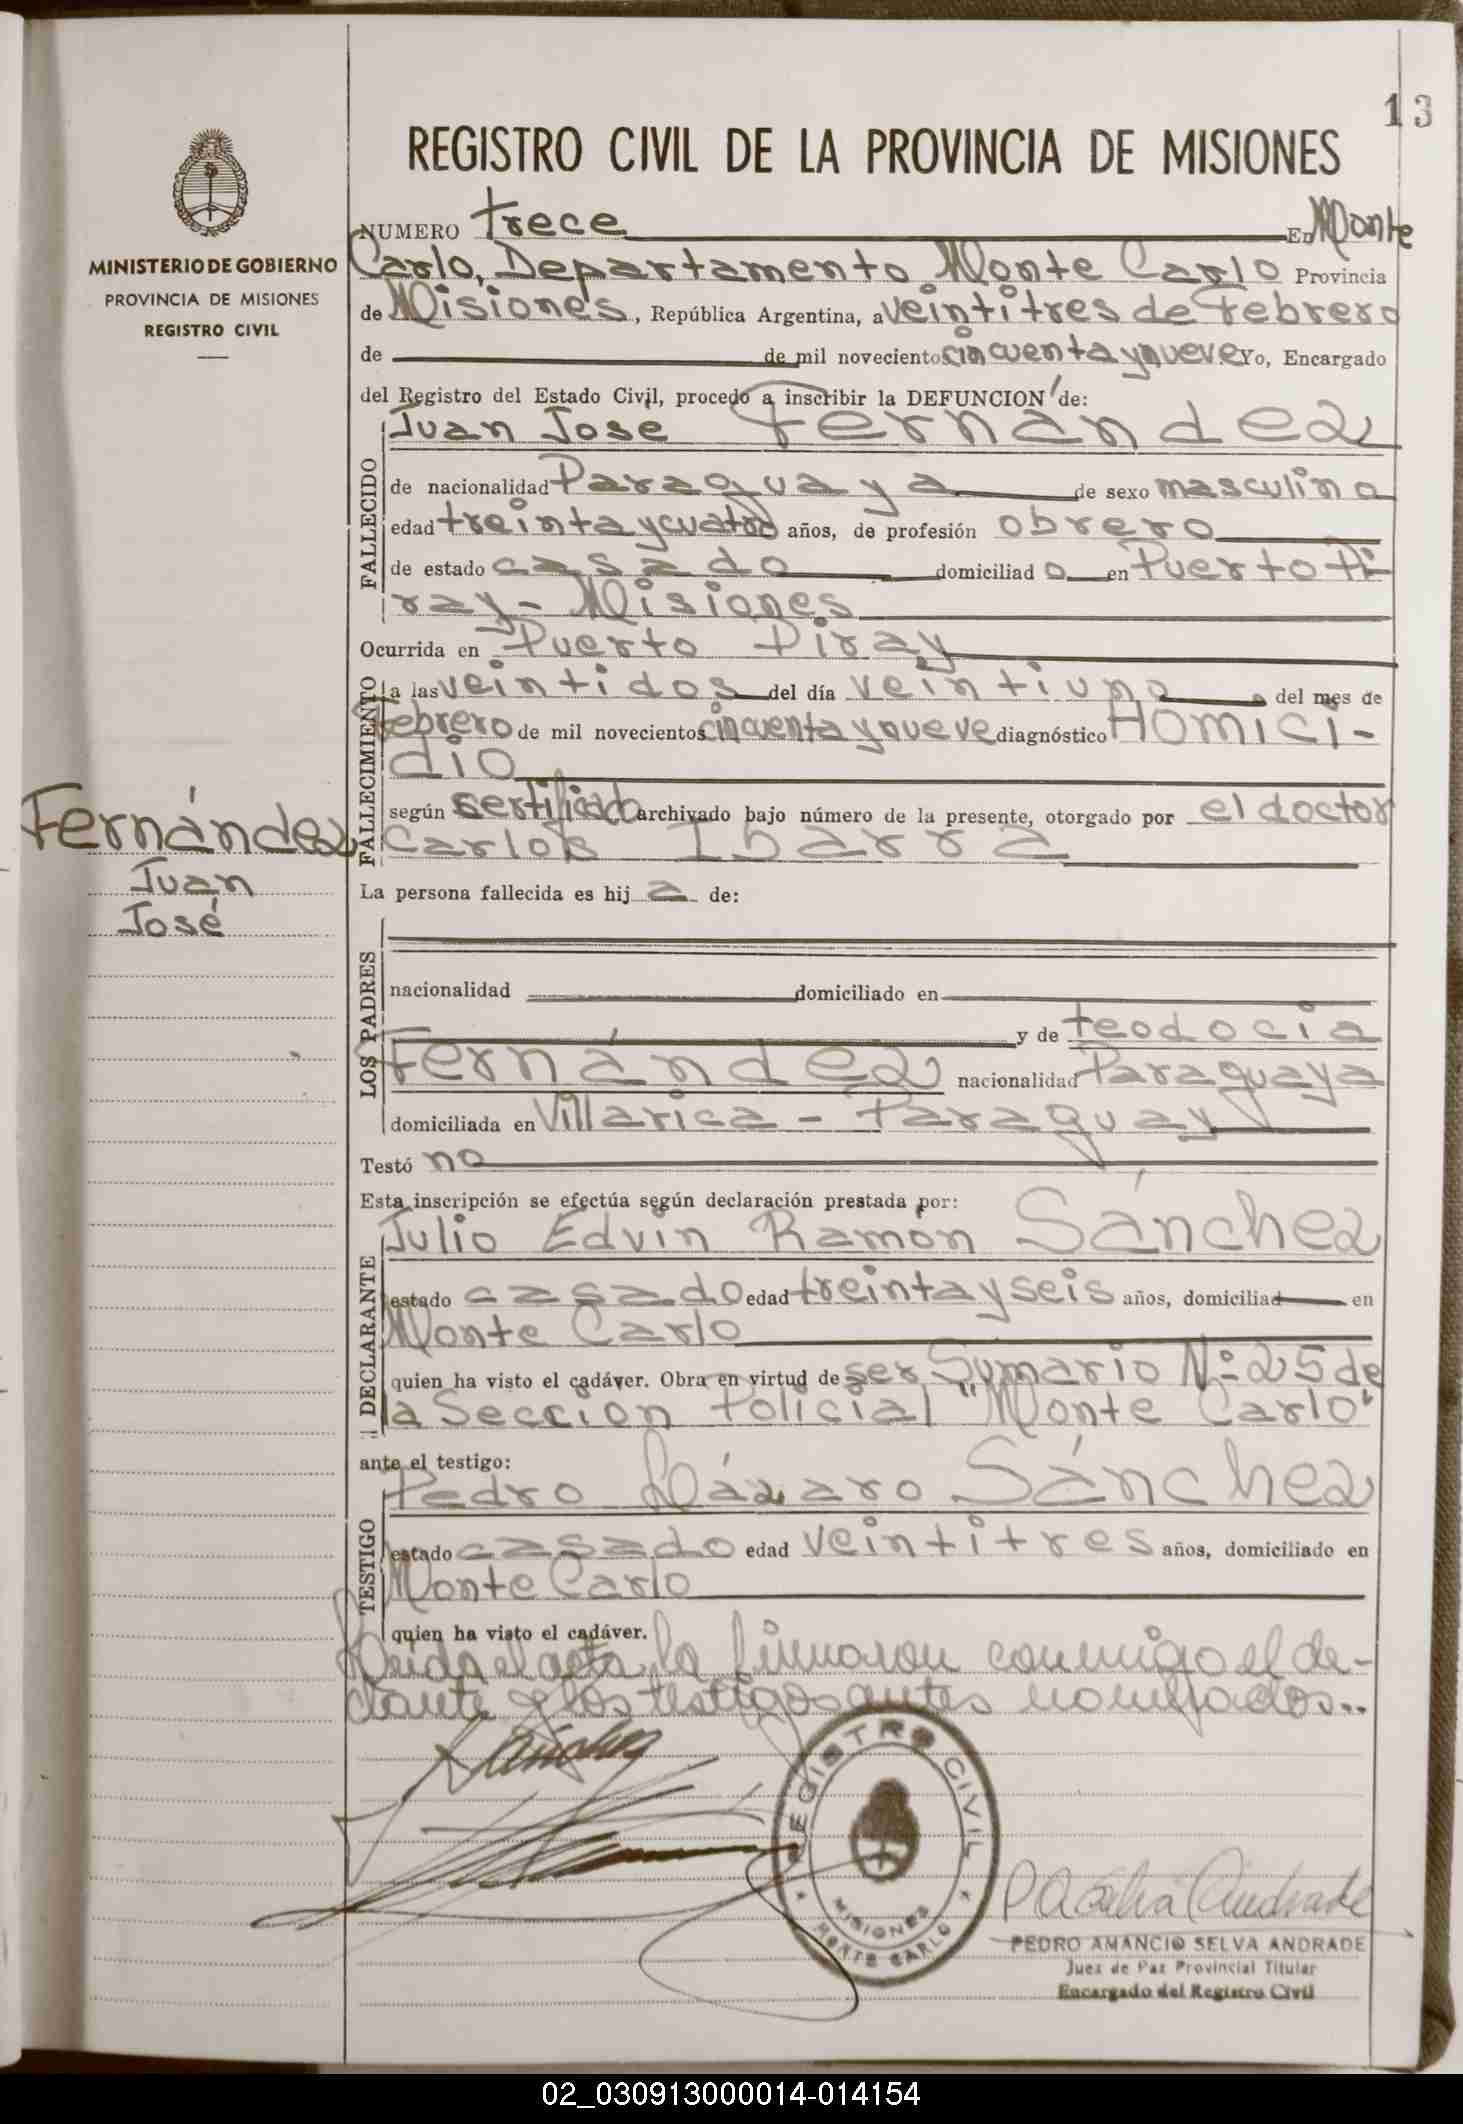 13
REGISTRO CIVIL DE LA PROVINCIA DE MISIONES
MINISTERIO DE GOBIERNO
PROVINCIA DE MISIONES
REGISTRO CIVIL
NUMERO trece En Monte
Carlo, Departamento Monte Carlo Provincia
de Misiones, República Argentina, a veintitres de Febrero
de de mil novecientos cincuenta y nueve Yo, Encargado
del Registro del Estado Civil, procedo a inscribir la DEFUNCION de:
Juan Jose Fernández
FALLECIDO
de nacionalidad Paraguaya de sexo masculino
edad treinta y cuatro años, de profesión obrero
de estado casado domiciliad o en Puerto Pi
ray - Misiones
Ocurrida en Puerto Piray
FALLECIMIENTO
a las veintidos del día veintiuno del mes de
Febrero de mil novecientos cincuenta y nueve diagnóstico Homici-
dio
según sertificado archivado bajo número de la presente, otorgado por el doctor
Carlos Ibarra
Fernández
Juan
José
La persona fallecida es hij a de:
LOS PADRES
nacionalidad domiciliado en
y de teodocia
Fernández nacionalidad Paraguaya
domiciliada en Villarica - Paraguay
Testó no
Esta inscripción se efectúa según declaración prestada por:
Julio Edvin Ramon Sánchez
DECLARANTE
estado casado edad treinta y seis años, domiciliad en
Monte Carlo
quien ha visto el cadáver. Obra en virtud de ser Sumario Nº 25 de
la Seccion Policial "Monte Carlo"
ante el testigo:
Pedro Lázaro Sánchez
TESTIGO
estado casado edad veintitres años, domiciliado en
Monte Carlo
quien ha visto el cadáver.
Leida el acta, la firmaron conmigo el de-
clante y los testigos antes nombrados..
REGISTRO CIVIL
MISIONES
MONTE CARLO
PEDRO AMANCIO SELVA ANDRADE
Juez de Paz Provincial Titular
Encargado del Registro Civil
02_030913000014-014154